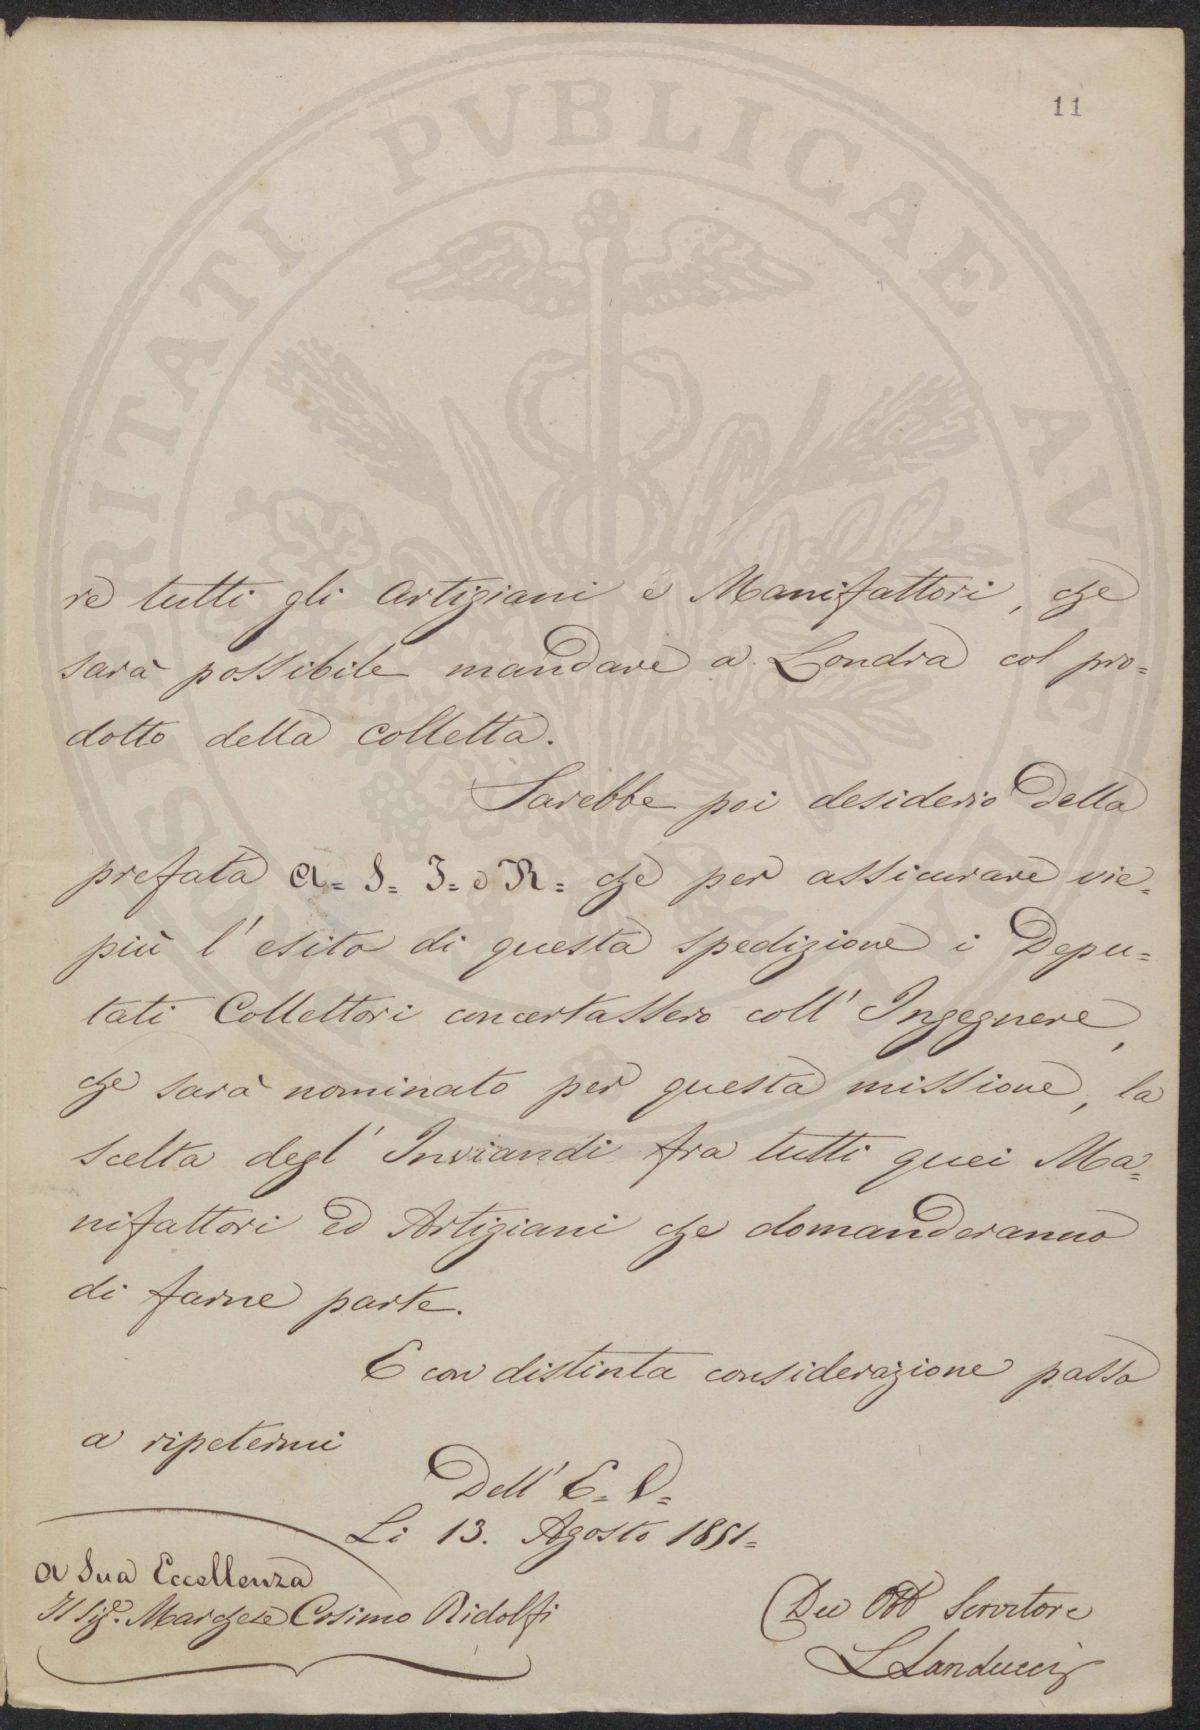 11
re tutti gli Artigiani e Manifattori, che
sarà possibile mandare a Londra col pro=
dotto della Colletta.
Sarebbe poi desiderio della
prefata A= S= I= e R= che per assicurare vie=
più l'esito di questa spedizione i Depu=
tati Collettori concertassero coll'Ingegnere,
che sarà nominato per questa missione, la
scelta degl'Inviandi fra tutti quei Ma=
nifattori ed Artigiani che domanderanno
di farne parte.
E con distinta considerazione passo
a ripetermi
Dell'E= V=
Li 13. Agosto 1851=
A Sua Eccellenza
Il Sigr. Marchese Cosimo Ridolfi
Dev Obb Servitore
L Landucci
SOSPERITATI PVBLICAE AVGENDAE